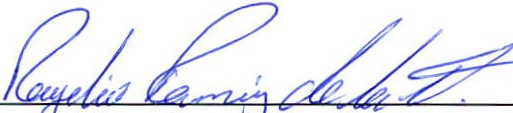 Rogelio Ramirez de la O.